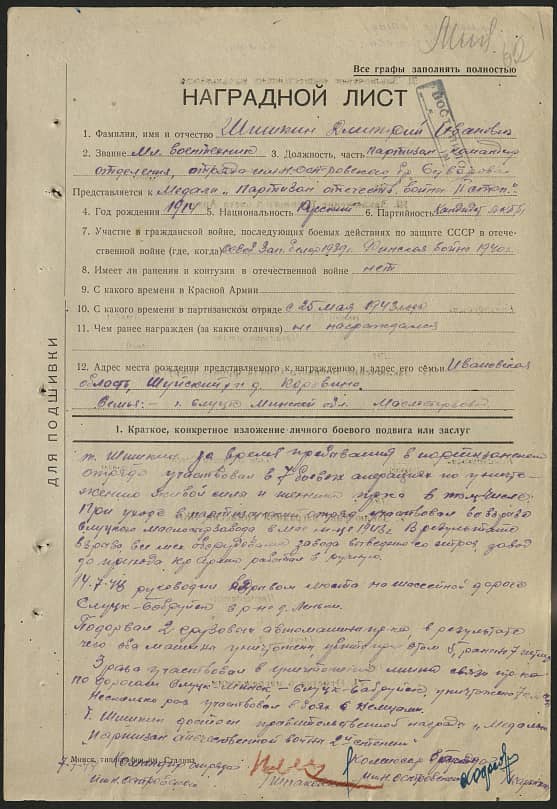 Все графы заполнять полностью
НАГРАДНОЙ ЛИСТ
1. Фамилия, имя и отчество Шишкин Дмитрий Иванович
2. Звание Мл. воентехник 3. Должность, часть партизан командир
отделения, отряда им. Н. Островского бр. Суворова
Представляется к Медали „Партизан отечеств войны II степ."
4. Год рождения 1914 5. Национальность Русский 6. Партийность Кандидат ВКП(б)
7. Участие в гражданской войне, последующих боевых действиях по защите СССР в отече-
ственной войне (где, когда) 1939г. Финская война 1940г
8. Имеет ли ранения и контузии в отечественной войне нет
9. С какого времени в Красной Армии
10. С какого времени в партизанском отряде с 25 мая 1943 года
11. Чем ранее награжден (за какие отличия) не награждался
12. Адрес места рождения представляемого к награждению и адрес его семьи Ивановская
область, Шуйский р-н д.
Семья: - г. Слуцк Минской обл.
ДЛЯ ПОДШИВКИ
1. Краткое, конкретное изложение личного боевого подвига или заслуг
т. Шишкин за время пребывания в партизанском
отряде участвовал в 7 боевых операциях по уничто-
жению живой силы и техники врага в том числе:
При уходе в партизанский отряд участвовал во взрыве
Слуцкого маслозавода в 1943г. В результате
взрыва, все оборудование завода выведено из строя, завод
до прихода Кр. Армии работал в ручную.
14.7.43 руководил взрывом моста на шоссейной дороге
Слуцк-Бобруйск в р-не д.
Подорвал 2 грузовых автомашины пр-ка, в результате
чего два машины уничтожены, убито при этом 5, ранено 7
3 раза участвовал в уничтожении линии связи пр-ка
по дорогам Слуцк-Минск - Слуцк-Бобруйск, уничтожено
Несколько раз участвовал в боях с немцами.
т. Шишкин достоен правительственной награды „Медаль
Партизан отечественной войны 2й степени"
Минск, типография им. Сталина
Командир отряда
им. Островского
Комиссар отряда
им. Островского